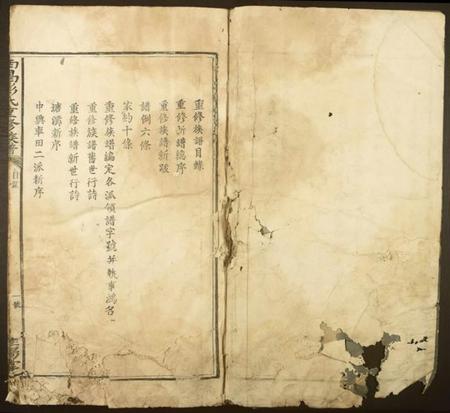 重修族譜目錄
重修族譜總序
重修族譜新跋
譜例六條
家約十條
重修族譜編定各派領譜字號并執事鴻名
重修族譜舊世行詩
重修族譜新世行詩
塘溪新序
中興車田二派新序
目錄
一號